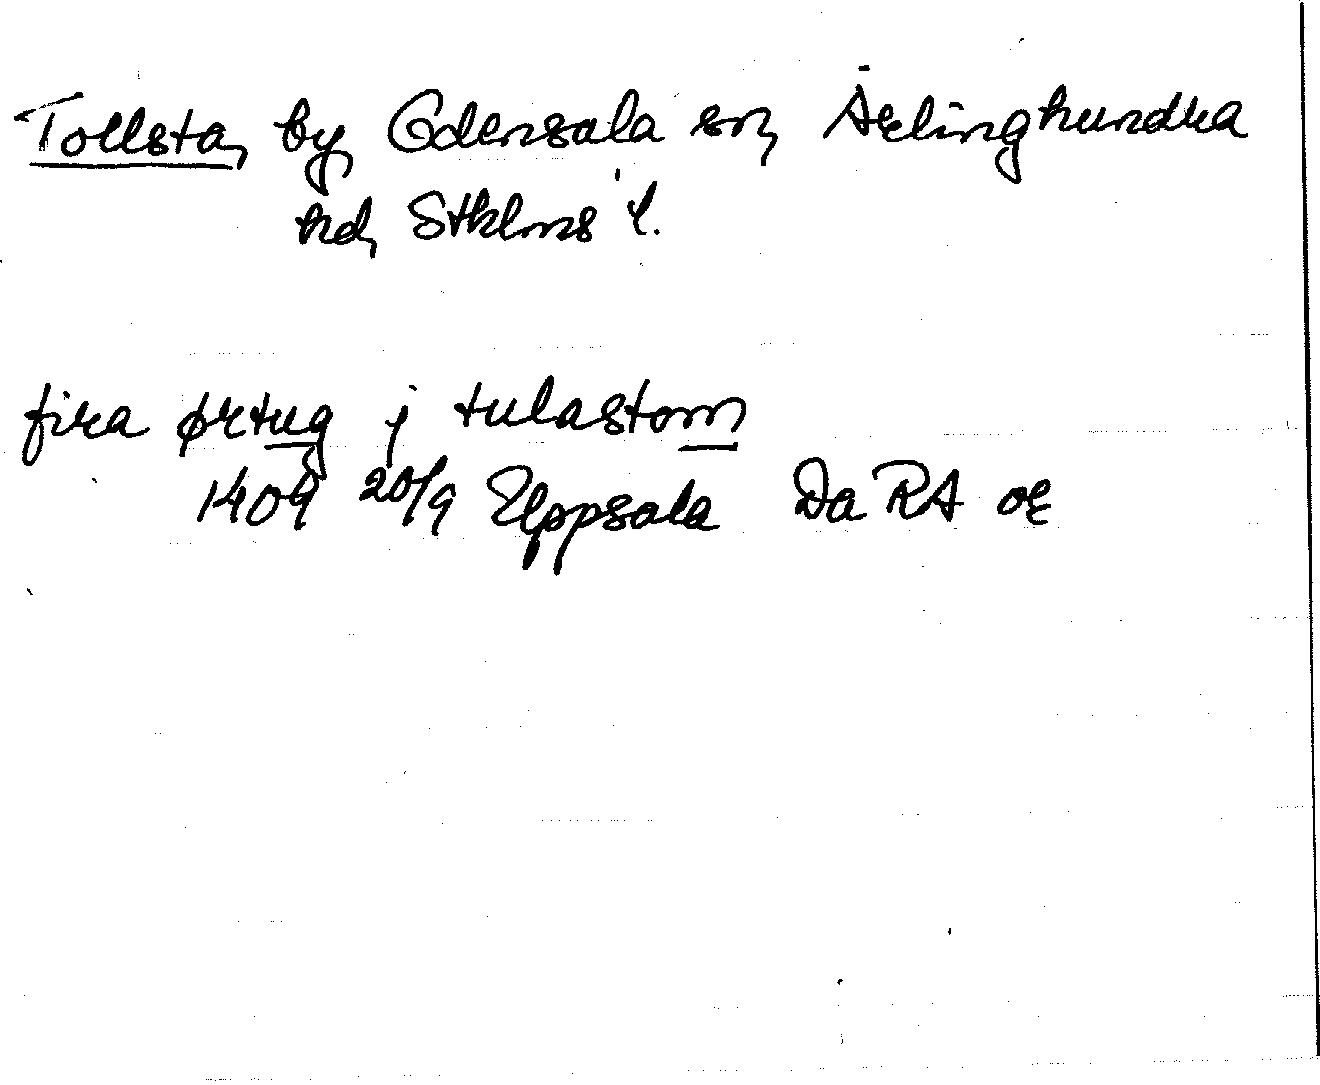 Tollsta, by, Odensala sn, Ärlinghundra
hd, Stklms l.
fira ørtug j tulastom
1409 20/9 Uppsala Da RA or